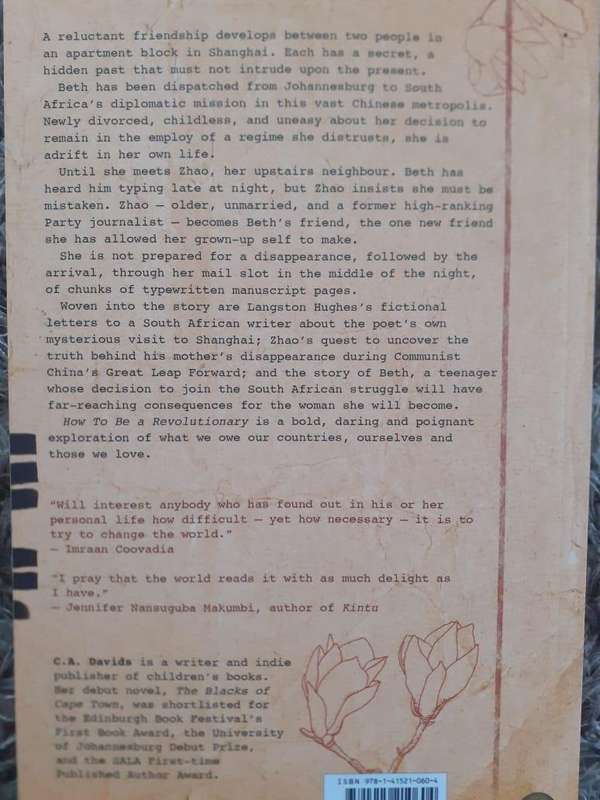 A reluctant friendship develops between two people in
an apartment block in Shanghai. Each has a secret, a
hidden past that must not intrude upon the present.
Beth has been dispatched from Johannesburg to South
Africa's diplomatic mission in this vast Chinese metropolis.
Newly divorced, childless, and uneasy about her decision to
remain in the employ of a regime she distrusts, she is
adrift in her own life.
Until she meets Zhao, her upstairs neighbour. Beth has
heard him typing late at night, but Zhao insists she must be
mistaken. Zhao – older, unmarried, and a former high-ranking
Party journalist – becomes Beth's friend, the one new friend
she has allowed her grown-up self to make.
She is not prepared for a disappearance, followed by the
arrival, through her mail slot in the middle of the night,
of chunks of typewritten manuscript pages.
Woven into the story are Langston Hughes's fictional
letters to a South African writer about the poet's own
mysterious visit to Shanghai; Zhao's quest to uncover the
truth behind his mother's disappearance during Communist
China's Great Leap Forward; and the story of Beth, a teenager
whose decision to join the South African struggle will have
far-reaching consequences for the woman she will become.
How To Be a Revolutionary is a bold, daring and poignant
exploration of what we owe our countries, ourselves and
those we love.
"Will interest anybody who has found out in his or her
personal life how difficult – yet how necessary – it is to
try to change the world."
– Imraan Coovadia
"I pray that the world reads it with as much delight as
I have."
– Jennifer Nansuguba Makumbi, author of Kintu
C.A. Davids is a writer and indie
publisher of children's books.
Her debut novel, The Blacks of
Cape Town, was shortlisted for
the Edinburgh Book Festival's
First Book Award, the University
of Johannesburg Debut Prize,
and the SALA First-time
Published Author Award.
ISBN 978-1-41521-060-4